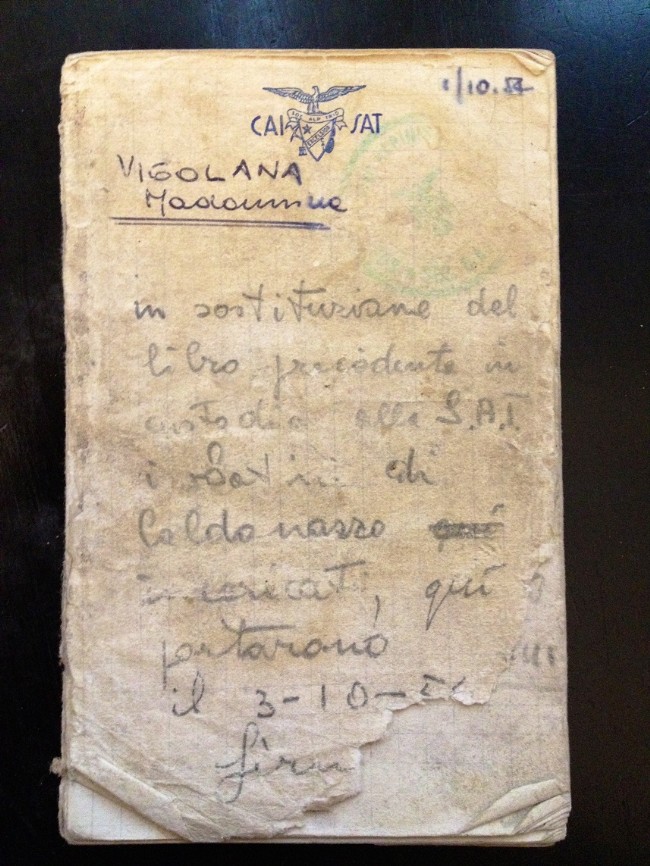 1/10.54
CAI SAT
EXCELSIOR
VIGOLANA
Madonnina
in sostituzione del
libro precedente in
custodia alla S.A.T.
i Satini di
Caldonazzo
incaricati, qui
portarono
il 3-10-